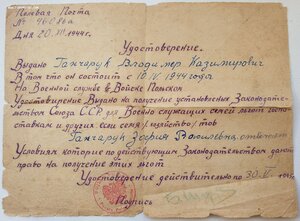 Полевая Почта
№ 96086а
Дня 20.III.1944г.
Удостоверение.
Выдано Ганчарук Владимер Казимирович
В том что он состоит с 10.IV.1944 года
На Военной службе в Войске Польском
Удостоверение Выдано на получение установленных Законодатель-
ством Союза ССР для Военно служащих семей льгот
и других если семья (
Ганчарук Зофия Васильевна отвечает
Условиям которые по действующим Законодательством дают
право на получение этих льгот
Удостоверение действительно по 30.VI.1945
Подпись